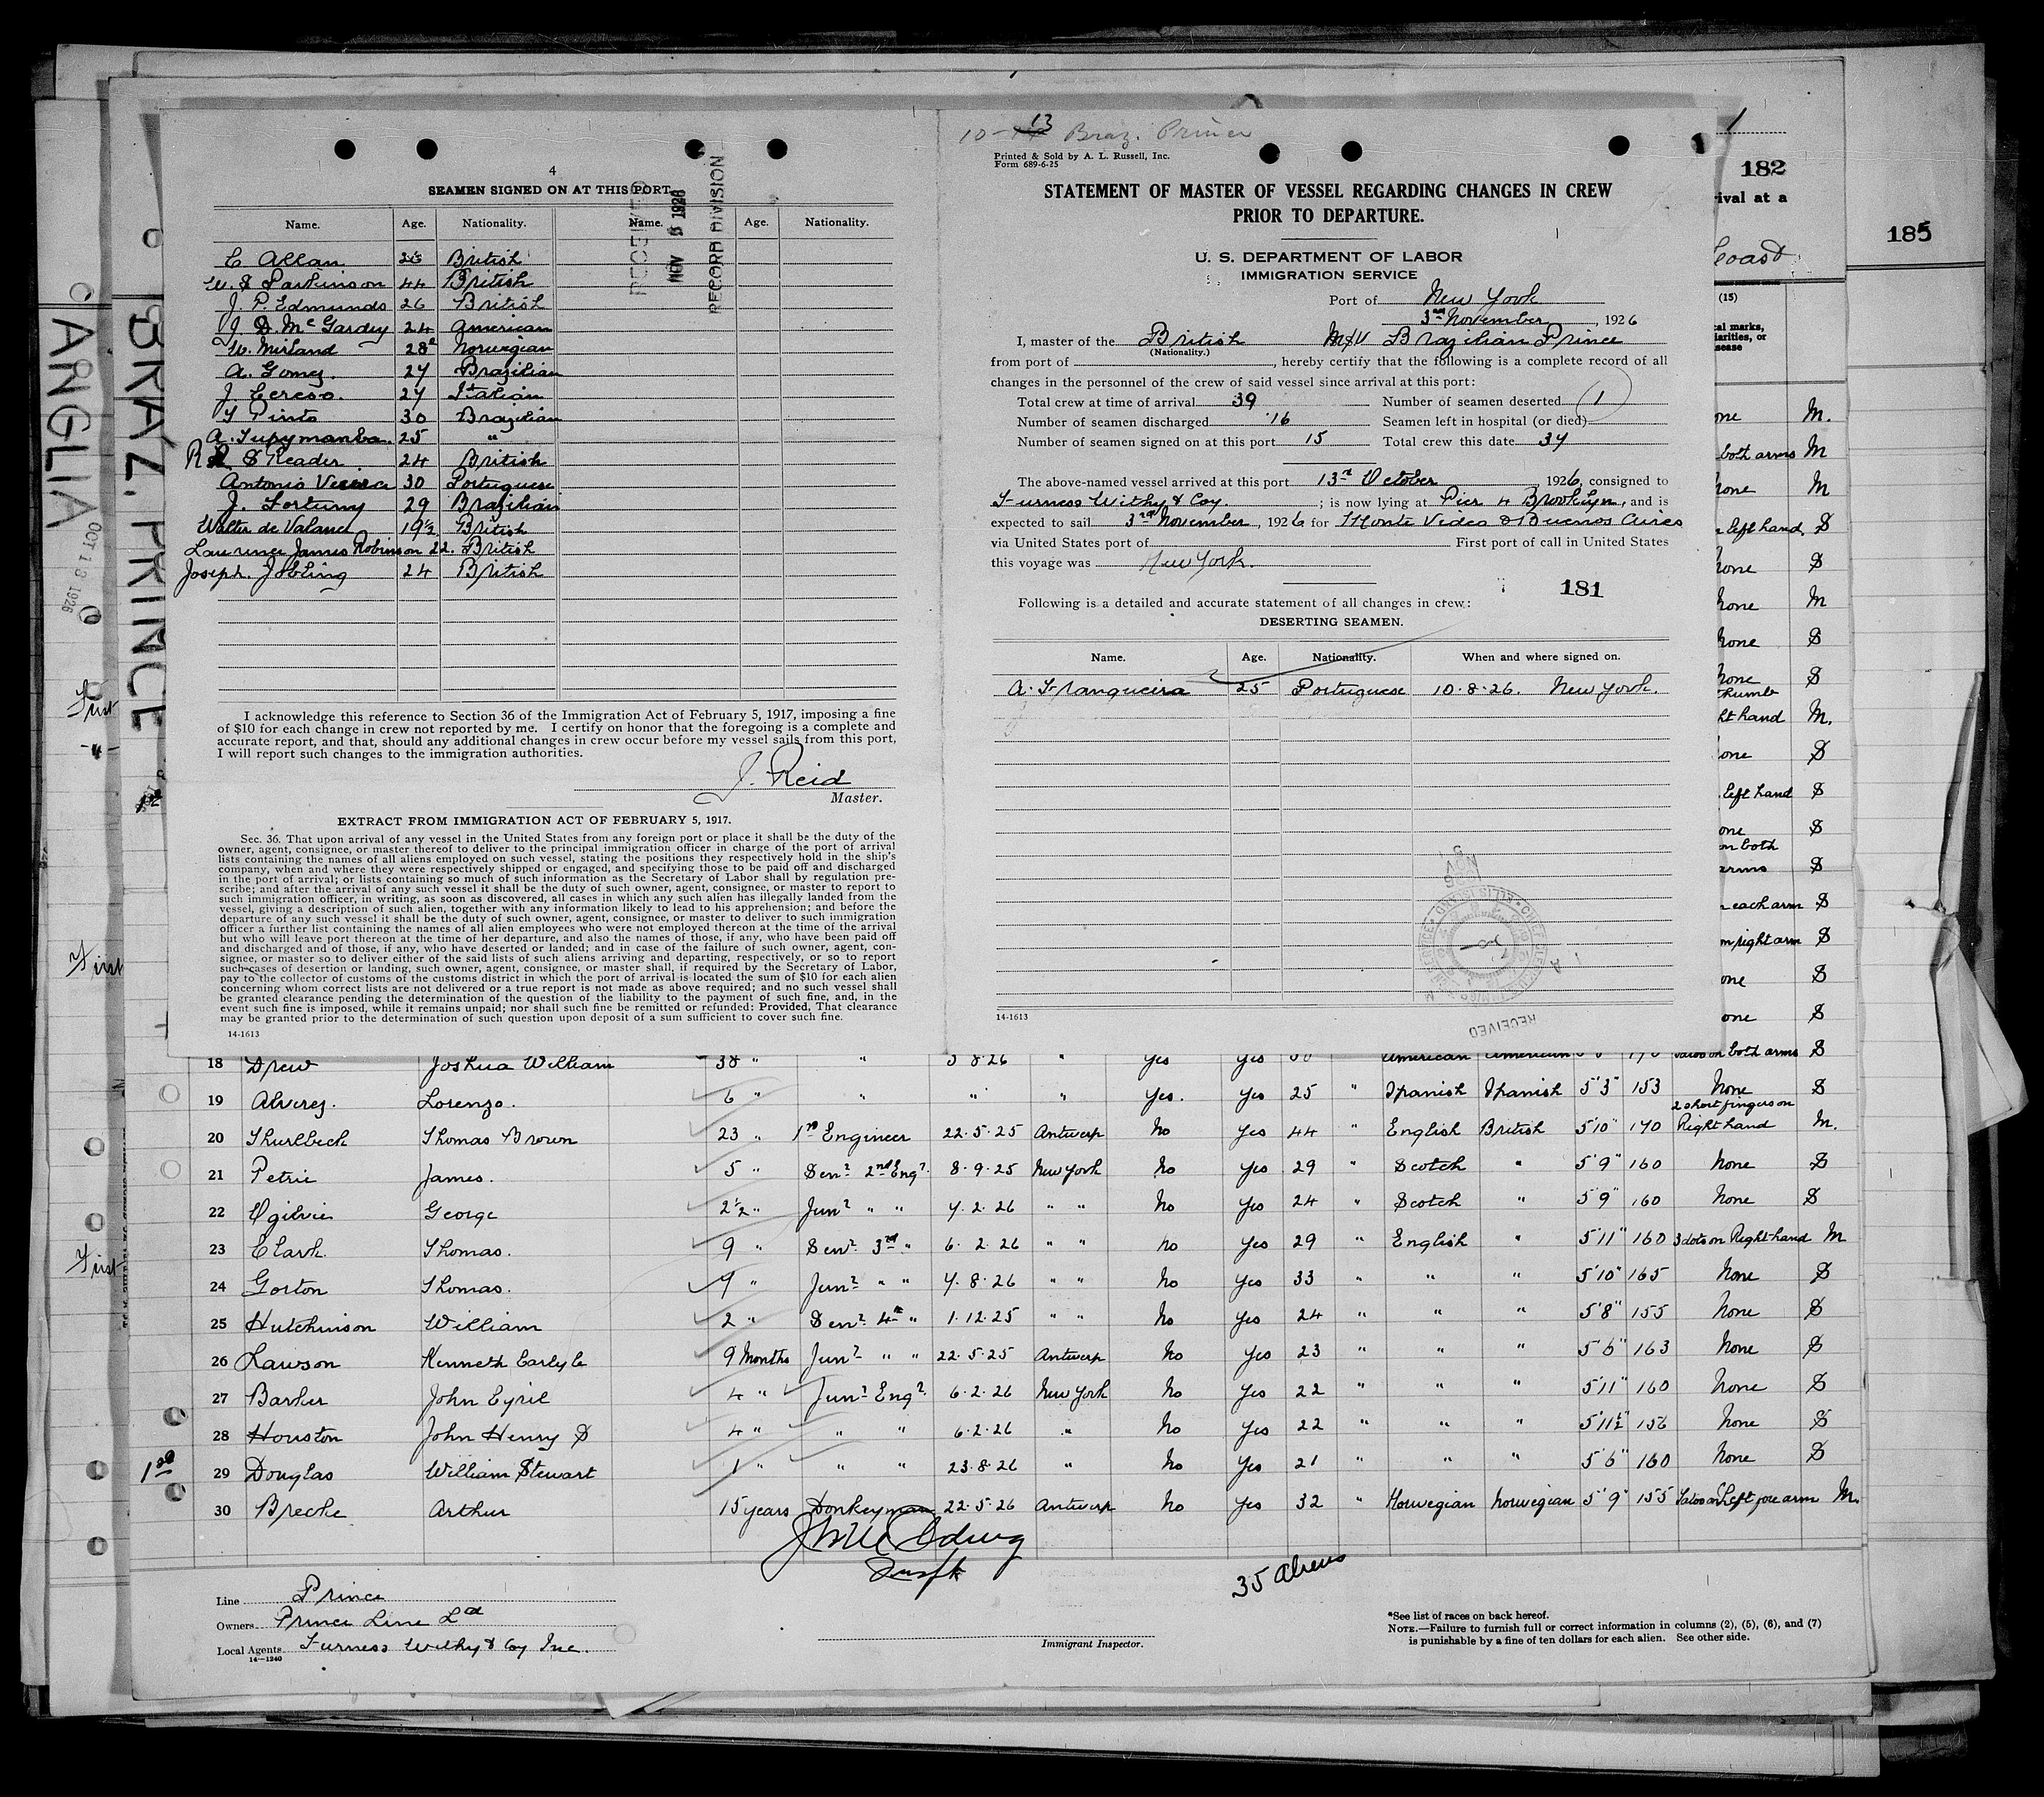 4
SEAMEN SIGNED ON AT THIS PORT
Name. Age. Nationality. Name. Age. Nationality.
RECEIVED
NOV 5 1926
RECORD DIVISION
C Allan 26 British
W. S Parkinson 44 British
J. P. Edmunds 26 British
J. D. Mc Gardey 24 American
W. Mirland 28 Norwegian
A. Gomez. 27 Brazilian
J. Cereso. 27 Italian
Y Pinto 30 Brazilian
A. Tupymanba. 25 "
R S Reader 24 British
Antonio 30 Portuguese
J. Fortuny 29 Brazilian
Walter de Valance 19½ British
Laurence James Robinson 22. British
Joseph. Jobling 24 British
I acknowledge this reference to Section 36 of the Immigration Act of February 5, 1917, imposing a fine
of $10 for each change in crew not reported by me. I certify on honor that the foregoing is a complete and
accurate report, and that, should any additional changes in crew occur before my vessel sails from this port,
I will report such changes to the immigration authorities.
J. Reid
Master.
EXTRACT FROM IMMIGRATION ACT OF FEBRUARY 5, 1917.
Sec. 36. That upon arrival of any vessel in the United States from any foreign port or place it shall be the duty of the
owner, agent, consignee, or master thereof to deliver to the principal immigration officer in charge of the port of arrival
lists containing the names of all aliens employed on such vessel, stating the positions they respectively hold in the ship's
company, when and where they were respectively shipped or engaged, and specifying those to be paid off and discharged
in the port of arrival; or lists containing so much of such information as the Secretary of Labor shall by regulation pre-
scribe; and after the arrival of any such vessel it shall be the duty of such owner, agent, consignee, or master to report to
such immigration officer, in writing, as soon as discovered, all cases in which any such alien has illegally landed from the
vessel, giving a description of such alien, together with any information likely to lead to his apprehension; and before the
departure of any such vessel it shall be the duty of such owner, agent, consignee, or master to deliver to such immigration
officer a further list containing the names of all alien employees who were not employed thereon at the time of the arrival
but who will leave port thereon at the time of her departure, and also the names of those, if any, who have been paid off
and discharged and of those, if any, who have deserted or landed; and in case of the failure of such owner, agent, con-
signee, or master so to deliver either of the said lists of such aliens arriving and departing, respectively, or so to report
such cases of desertion or landing, such owner, agent, consignee, or master shall, if required by the Secretary of Labor,
pay to the collector of customs of the customs district in which the port of arrival is located the sum of $10 for each alien
concerning whom correct lists are not delivered or a true report is not made as above required; and no such vessel shall
be granted clearance pending the determination of the question of the liability to the payment of such fine, and, in the
event such fine is imposed, while it remains unpaid; nor shall such fine be remitted or refunded: Provided, That clearance
may be granted prior to the determination of such question upon deposit of a sum sufficient to cover such fine.
14-1613
10-13 Braz. Prince
Printed & Sold by A. L. Russell, Inc.
Form 689-6-25
STATEMENT OF MASTER OF VESSEL REGARDING CHANGES IN CREW
PRIOR TO DEPARTURE.
U. S. DEPARTMENT OF LABOR
IMMIGRATION SERVICE
Port of New York
3rd November, 1926
I, master of the British M/V Brazilian Prince
(Nationality.)
from port of , hereby certify that the following is a complete record of all
changes in the personnel of the crew of said vessel since arrival at this port:
Total crew at time of arrival 39 Number of seamen deserted 1
Number of seamen discharged 16 Seamen left in hospital (or died)
Number of seamen signed on at this port 15 Total crew this date 37
The above-named vessel arrived at this port 13th October, 1926, consigned to
Furness Withy & Coy ; is now lying at Pier 4 Brooklyn, and is
expected to sail 3rd November, 1926 for Monte Video & Buenos Aires
via United States port of First port of call in United States
this voyage was New York.
181
Following is a detailed and accurate statement of all changes in crew:
DESERTING SEAMEN.
Name. Age. Nationality. When and where signed on.
A. Franqueira 25 Portuguese 10.8.26. New York.
RECEIVED
14-1613
1
182
rival at a
Coast
(15)
cal marks,
iarities, or
sease
one M.
both arms M
none M
left hand. S
none S
none M
none S
none S
thumb
ht hand M.
one S
left hand S
one S
on both
arms S
each arm S
right arm S
one S
one S
185
ANGLIA
OCT 13 1926
BRAZ. PRINCE
First
-4-
1st
First
First
1st
18 Drew Joshua William 38 " " 5.8.26 " Yes Yes American American Tatoo on both arms S
19 Alverez. Lorenzo. 6 " " " " Yes. Yes 25 " Spanish Spanish 5'3" 153 None S
20 Thurlbeck Thomas Brown 23 " 1st Engineer 22.5.25 Antwerp No Yes 44 " English British 5'10" 170 2 short fingers on Right hand M.
21 Petrie James. 5 " Senr 2nd Engr. 8.9.25 New York No Yes 29 " Scotch " 5'9" 160 None S
22 Ogilvie George 2½ " Junr " " 7.2.26 " " No Yes 24 " Scotch " 5'9" 160 None S
23 Clark Thomas. 9 " Senr 3rd " 6.2.26 " " No Yes 29 " English " 5'11" 160 3 dots on Right hand M
24 Gorton Thomas. 7 " Junr " " 7.8.26 " " No Yes 33 " " " 5'10" 165 None S
25 Hutchinson William 2 " Senr 4th " 1.12.25 " " No Yes 24 " " " 5'8" 155 None S
26 Lawson Kenneth Carlyle 9 Months Junr " " 22.5.25 Antwerp No Yes 23 " " " 5'6" 163 None S
27 Barker John Cyril 4 " Junr Engr. 6.2.26 New York No Yes 22 " " " 5'11" 160 None S
28 Houston John Henry S 4 " " " 6.2.26 " No Yes 22 " " " 5'11½" 156 None S
29 Douglas William Stewart 1 " " " 23.8.26 " No Yes 21 " " " 5'6" 160 None S
30 Brecke Arthur 15 years Donkeyman 22.5.26 Antwerp No Yes 32 " Norwegian Norwegian 5'9" 155 Tatoo on Left fore arm M.
35 Aliens
Line Prince
Owners Prince Line Ltd
Local Agents Furness Withy & Coy Inc.
14-1240
Immigrant Inspector.
*See list of races on back hereof.
NOTE.—Failure to furnish full or correct information in columns (2), (5), (6), and (7)
is punishable by a fine of ten dollars for each alien. See other side.